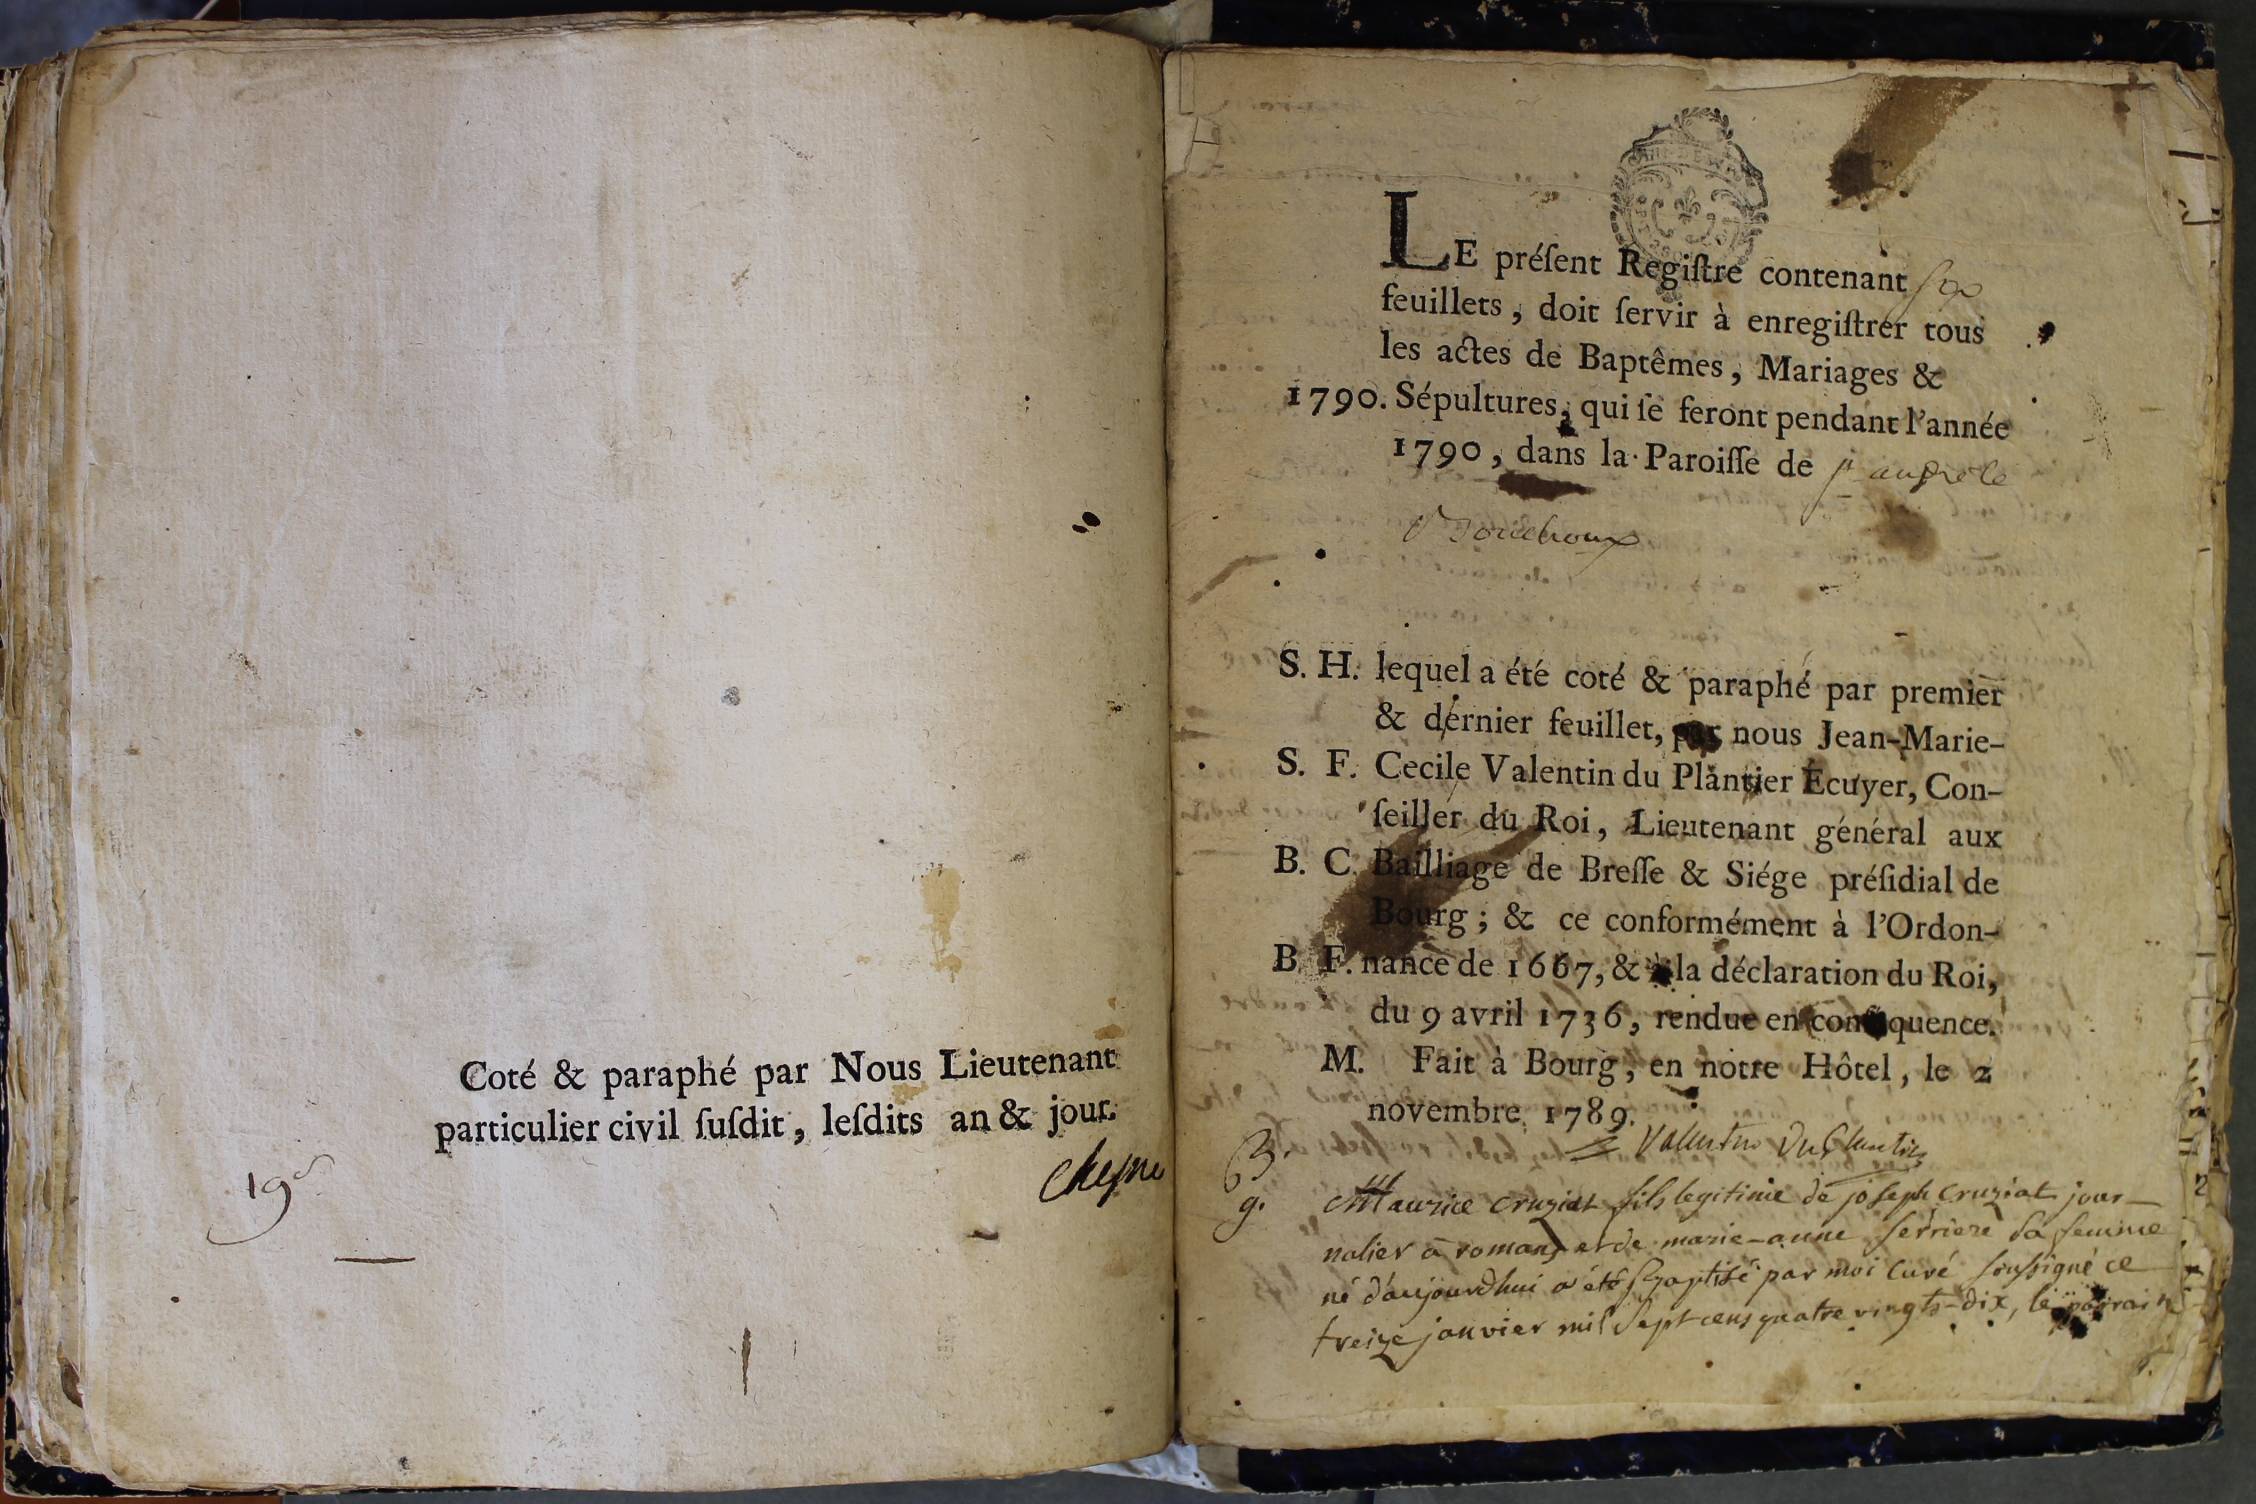 Coté & paraphé par Nous Lieutenant
particulier civil ſuſdit, leſdits an & jour.
Cheyne
19
LE préſent Regiſtre contenant ſix
feuillets, doit ſervir à enregiſtrer tous
les actes de Baptêmes, Mariages &
1790. Sépultures, qui ſe feront pendant l'année
1790, dans la Paroiſſe de st andré le
Bouchoux
S. H. lequel a été coté & paraphé par premier
& dernier feuillet, par nous Jean-Marie-
S. F. Cecile Valentin du Plantier Ecuyer, Con-
ſeiller du Roi, Lieutenant général aux
B. C. Bailliage de Breſſe & Siége préſidial de
Bourg; & ce conformément à l'Ordon-
B. F. nance de 1667, & à la déclaration du Roi,
du 9 avril 1736, rendue en conſéquence.
M. Fait à Bourg, en notre Hôtel, le 2
novembre 1789.
Valentin DuPlantier
B.
g. Maurice cruziat fils legitime de joseph cruziat jour-
nalier a romans et de marie-anne ferriere sa femme
né d'aujourdhui a été Baptisé par moi Curé soussigné ce
treize janvier mil sept cens quatre vingts-dix, le parrain